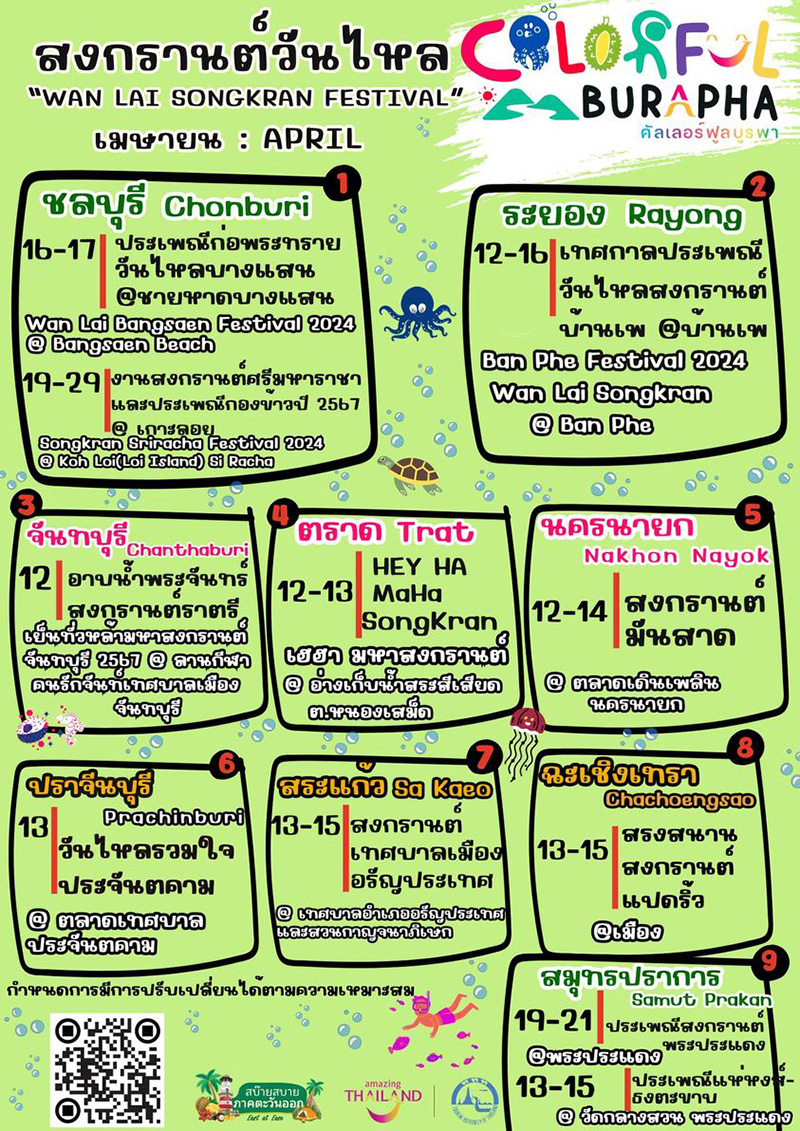 สงกรานต์วันไหล
"WAN LAI SONGKRAN FESTIVAL"
เมษายน : APRIL
COLORFUL
BURAPHA
คัลเลอร์ฟูลบูรพา
1
ชลบุรี Chonburi
16-17 ประเพณีก่อพระทราย
วันไหลบางแสน
@ชายหาดบางแสน
Wan Lai Bangsaen Festival 2024
@ Bangsaen Beach
19-29 งานสงกรานต์ศรีมหาราชา
และประเพณีกองข้าวปี 2567
@ เกาะลอย
Songkran Sriracha Festival 2024
@ Koh Loi(Loi Island) Si Racha
2
ระยอง Rayong
12-16 เทศกาลประเพณี
วันไหลสงกรานต์
บ้านเพ @บ้านเพ
Ban Phe Festival 2024
Wan Lai Songkran
@ Ban Phe
3
จันทบุรี
Chanthaburi
12 อาบน้ำพระจันทร์
สงกรานต์ราตรี
เย็นทั่วหล้ามหาสงกรานต์
จันทบุรี 2567 @ ลานกีฬา
คนรักจันท์เทศบาลเมือง
จันทบุรี
4
ตราด Trat
12-13 HEY HA
MaHa
SongKran
เฮฮา มหาสงกรานต์
@ อ่างเก็บน้ำสระสีเสียด
ต.หนองเสม็ด
5
นครนายก
Nakhon Nayok
12-14 สงกรานต์
มันสาด
@ ตลาดเดินเพลิน
นครนายก
6
ปราจีนบุรี
Prachinburi
13 วันไหลรวมใจ
ประจันตคาม
@ ตลาดเทศบาล
ประจันตคาม
7
สระแก้ว Sa Kaeo
13-15 สงกรานต์
เทศบาลเมือง
อรัญประเทศ
@ เทศบาลอำเภออรัญประเทศ
และสวนกาญจนาภิเษก
8
ฉะเชิงเทรา
Chachoengsao
13-15 สรงสนาน
สงกรานต์
แปดริ้ว
@เมือง
9
สมุทรปราการ
Samut Prakan
19-21 ประเพณีสงกรานต์
พระประแดง
@พระประแดง
13-15 ประเพณีแห่หงส์-
ธงตะขาบ
@ วัดกลางสวน พระประแดง
กำหนดการมีการปรับเปลี่ยนได้ตามความเหมาะสม
สบ๊ายสบาย
ภาคตะวันออก
East at Ease
amazing
THAILAND